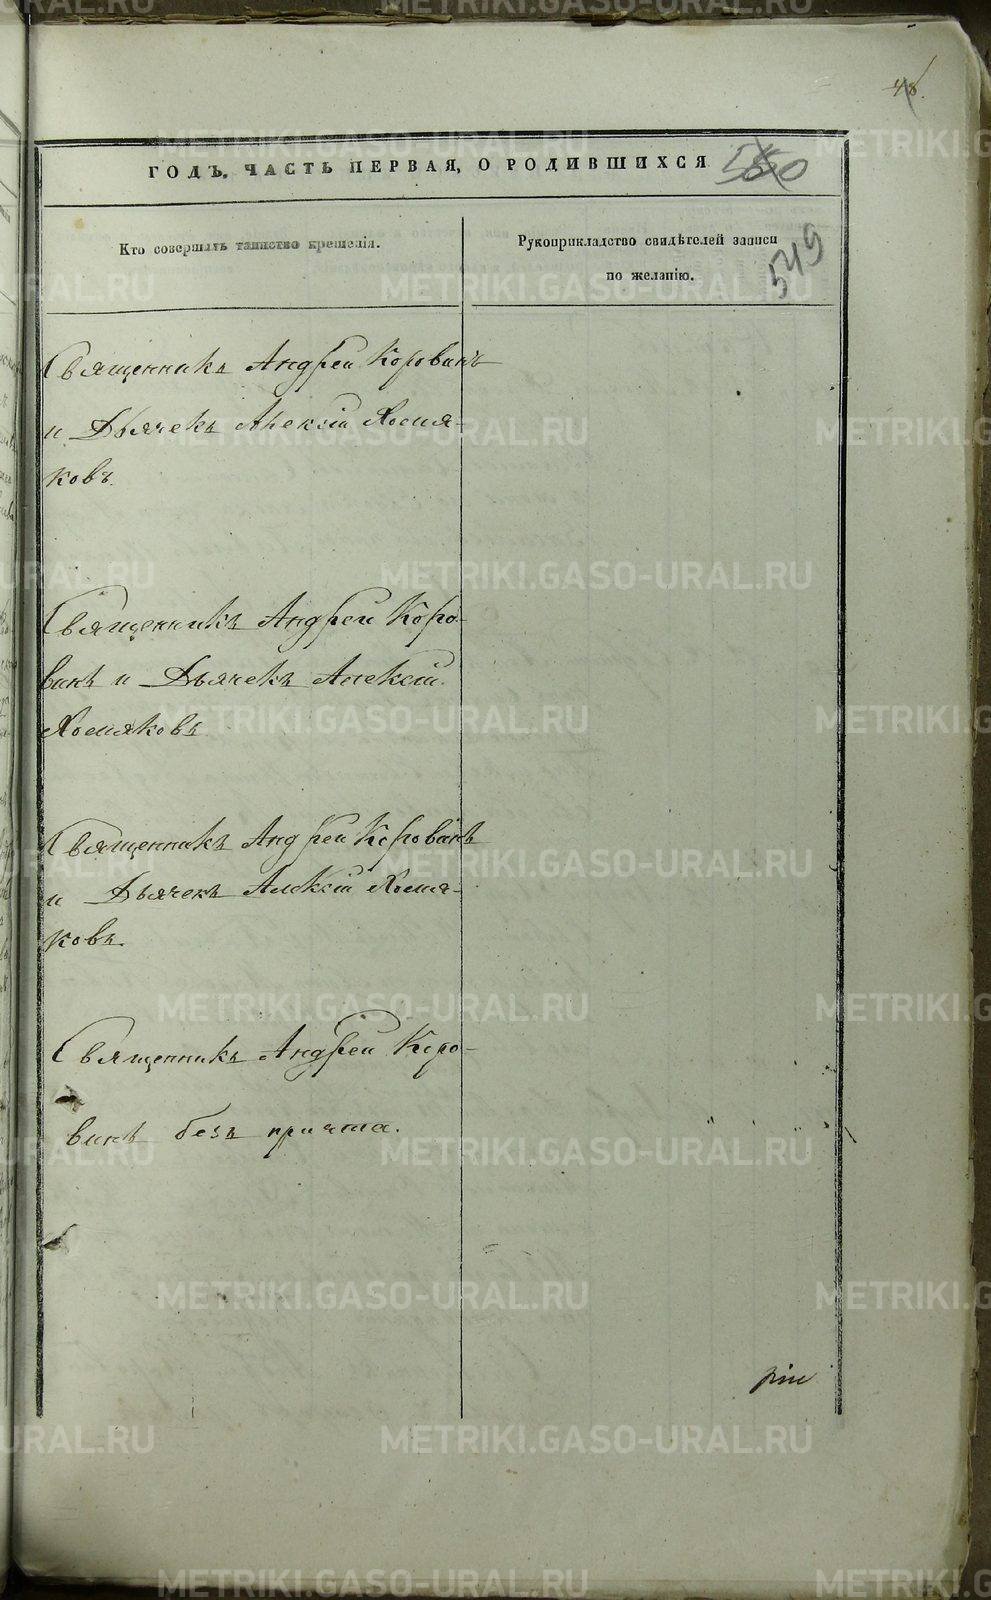 48.
ГОДЪ. ЧАСТЬ ПЕРВАЯ, О РОДИВШИХСЯ 550
Кто совершалъ таинство крещенія.
Рукоприкладство свидѣтелей записи
по желанію.
549
Священникъ Андрей Коровинъ
и Дьячекъ Алексій Хомя-
ковъ.
Священникъ Андрей Коро-
винъ и Дьячекъ Алексій
Хомяковъ
Священникъ Андрей Коровинъ
и Дьячекъ Алексій Хомя-
ковъ.
Священникъ Андрей Коро-
винъ безъ причта.
METRIKI.GASO-URAL.RU